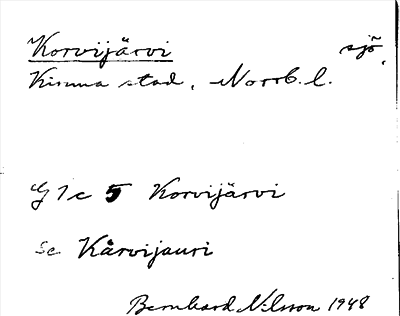 Korvijärvi sjö.
Kiruna stad, Norrb. l.
G 1c 5 Korvijärvi
Sc Kårvijauri
Bernhard Nilsson 1948